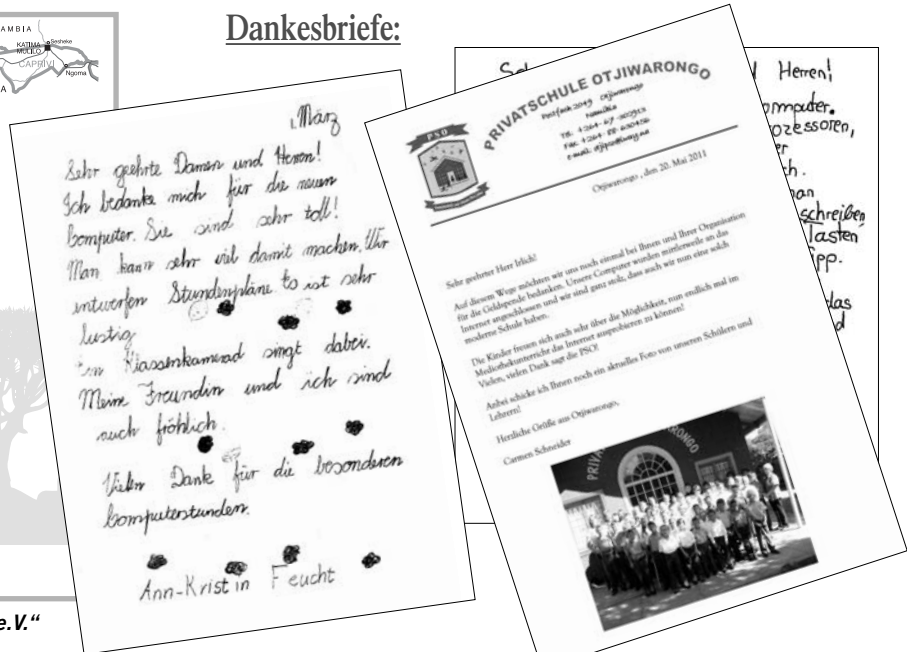 AMBIA
Sesheke
KATIMA
MULILO
CAPRIVI
Ngoma
A
Dankesbriefe:
1. März
Sehr geehrte Damen und Herren!
Ich bedanke mich für die neuen
Computer. Sie sind sehr toll!
Man kann sehr viel damit machen. Wir
entwerfen Stundenpläne. Es ist sehr
lustig
Ein Klassenkamerad singt dabei.
Meine Freundin und ich sind
auch fröhlich.
Vielen Dank für die besonderen
Computerstunden.
Ann-Kristin Feucht
PSO
PRIVATSCHULE OTJIWARONGO
Postfach 2049 Otjiwarongo
Namibia
Otjiwarongo, den 20. Mai 2011
Sehr geehrter Herr Irlich!
Auf diesem Wege möchten wir uns noch einmal bei Ihnen und Ihrer Organisation
für die Geldspende bedanken. Unsere Computer wurden mittlerweile an das
Internet angeschlossen und wir sind ganz stolz, dass auch wir nun eine solch
moderne Schule haben.
Die Kinder freuen sich auch sehr über die Möglichkeit, nun endlich mal im
Mediothekunterricht das Internet ausprobieren zu können!
Vielen, vielen Dank sagt die PSO!
Anbei schicke ich Ihnen noch ein aktuelles Foto von unseren Schülern und
Lehrern!
Herzliche Grüße aus Otjiwarongo,
Carmen Schneider
PRIVA
ARONGO
Herren!
omputer.
ozessoren,
er
h.
an
schreiben
lasten
pp.
das
d
e.V.“